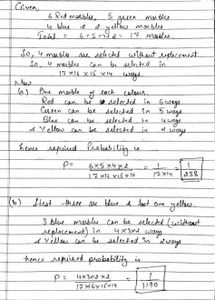 Given,
6 Red marbles, 5 green marbles
4 blue & 2 yellow marbles
Total = 6+5+4+2 = 17 marbles.
So, 4 marbles are selected without replacement
So, 4 marbles can be selected in
17×16×15×14 ways.
Now
(a) One marble of each colour.
Red can be selected in 6 ways
Green can be selected in 5 ways
Blue can be selected in 4 ways
& Yellow can be selected in 2 ways
hence required Probability is
P = 6×5×4×2 / 17×16×15×14 = 1 / 17×14 = 1 / 238
(b) first three are blue & last one yellow.
3 blue marbles can be selected (without
replacement) in 4×3×2 ways
& Yellow can be selected in 2 ways
hence required probability is
P = 4×3×2×2 / 17×16×15×14 = 1 / 1190